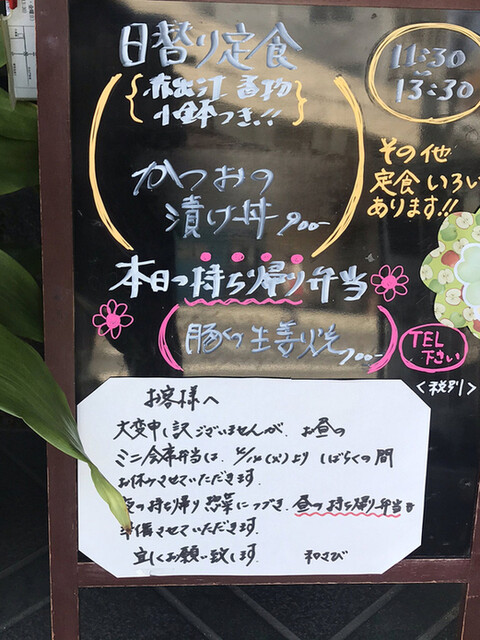 日替り定食
{赤出汁 香物
小鉢つき!!}
11:30
〜
13:30
かつおの
漬け丼 900-
その他
定食いろい
あります!!
本日の持ち帰り弁当
豚の生姜焼 700-
TEL
下さい
<税別>
お客様へ
大変申し訳ございませんが、お昼の
ミニ会席弁当は、(火)より しばらくの間
お休みさせていただきます。
夜の持ち帰り惣菜につづき、昼の持ち帰り弁当を
準備させていただきます。
宜しくお願い致します。 和さび